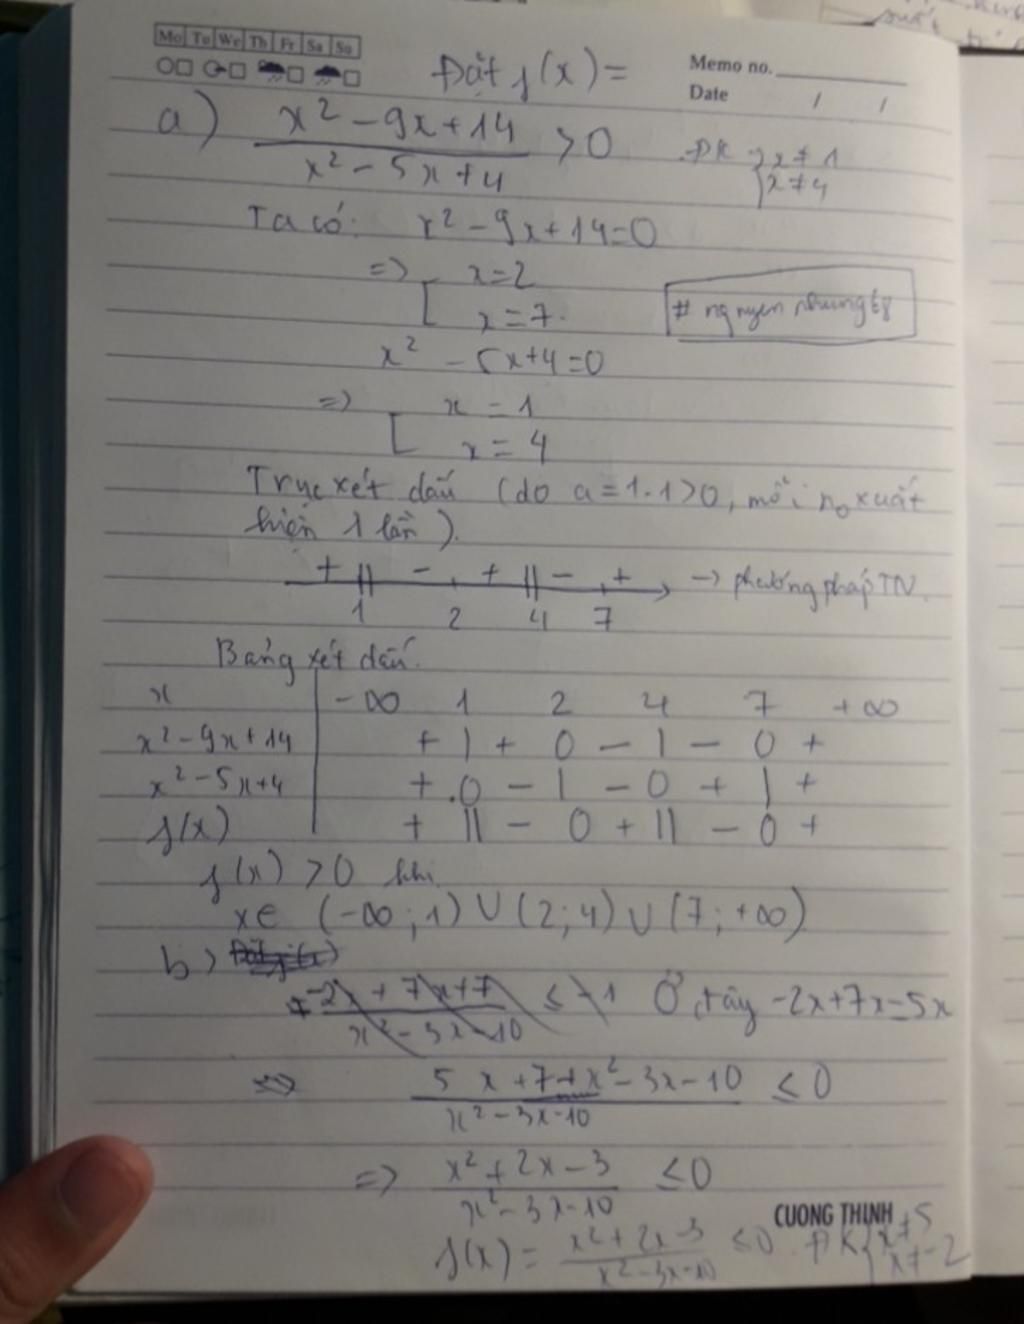 Mo Tu We Th Fr Sa Su
Đặt f(x) =
Memo no.
Date / /
a) x² - 9x + 14 / x² - 5x + 4 > 0 ĐK { x ≠ 1
x ≠ 4
Ta có: x² - 9x + 14 = 0
=> [ x = 2
x = 7.
# nguyen nhung
x² - 5x + 4 = 0
=> [ x = 1
x = 4
Trục xét dấu (do a = 1.1 > 0, mỗi n₀ xuất
hiện 1 lần).
+ || - + || - + -> phương pháp TN.
1 2 4 7
Bảng xét dấu.
x -∞ 1 2 4 7 +∞
x² - 9x + 14 + | + 0 - | - 0 +
x² - 5x + 4 + 0 - | - 0 + | +
f(x) + || - 0 + || - 0 +
f(x) > 0 khi
x ∈ (-∞; 1) ∪ (2; 4) ∪ (7; +∞)
b)
-2x + 7x + 7 / x² - 3x - 10 ≤ -1 Ở đây -2x + 7x = 5x
<=> 5x + 7 + x² - 3x - 10 / x² - 3x - 10 ≤ 0
=> x² + 2x - 3 / x² - 3x - 10 ≤ 0
CUONG THINH
f(x) = x² + 2x - 3 / x² - 3x - 10 ≤ 0 ĐK { x ≠ 5
x ≠ -2